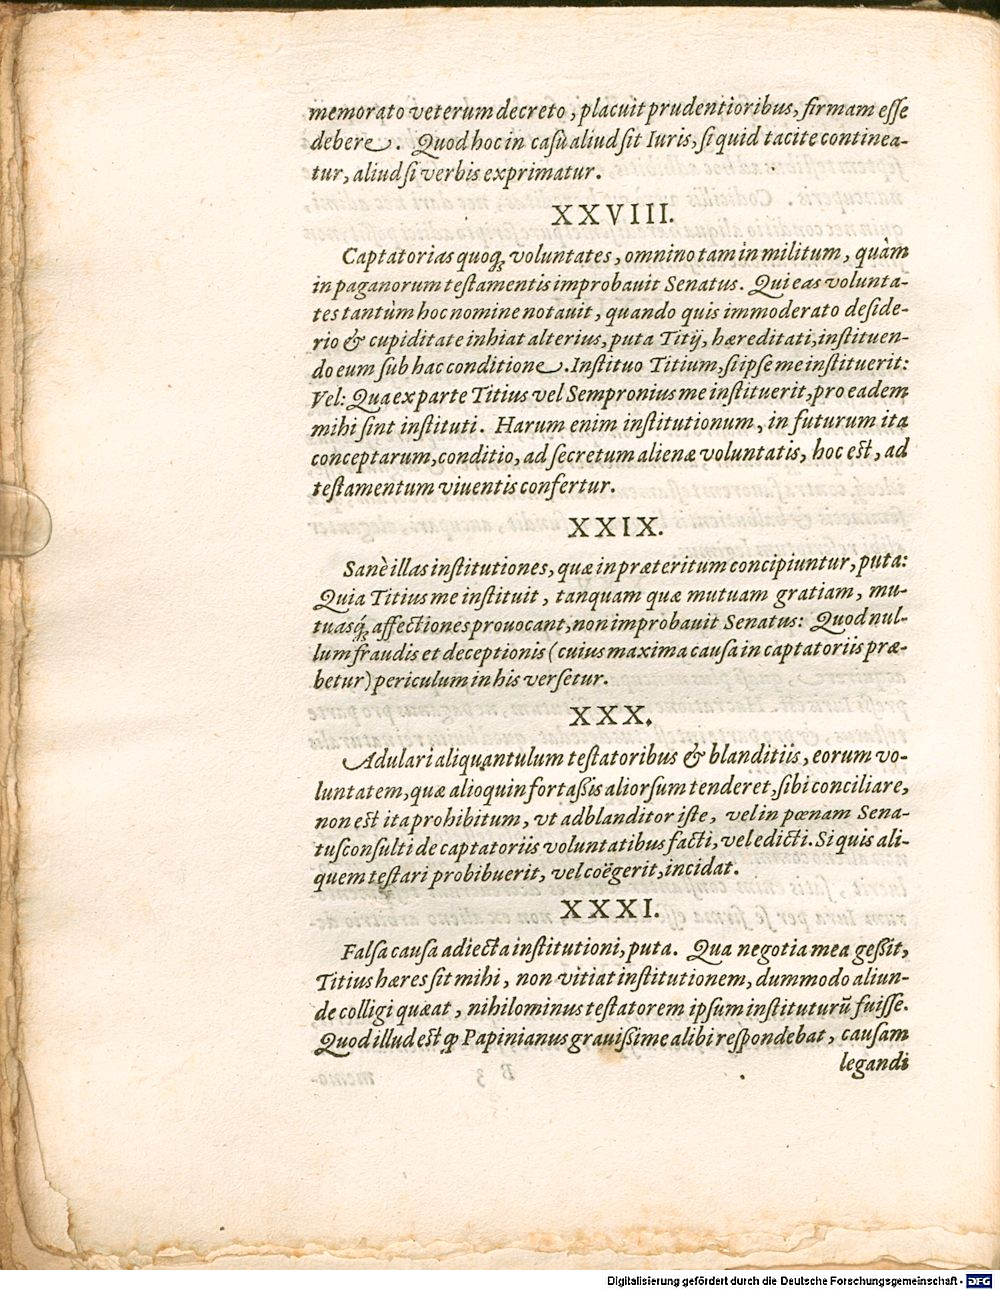 memorato veterum decreto, placuit prudentioribus, firmam esse
debere. Quod hoc in casu aliud sit Iuris, si quid tacite continea-
tur, aliud si verbis exprimatur.
XXVIII.
Captatorias quoq; voluntates, omnino tam in militum, quàm
in paganorum testamentis improbauit Senatus. Qui eas volunta-
tes tantùm hoc nomine notauit, quando quis immoderato deside-
rio & cupiditate inhiat alterius, puta Titij, hæreditati, instituen-
do eum sub hac conditione. Instituo Titium, si ipse me instituerit:
Vel: Qua ex parte Titius vel Sempronius me instituerit, pro eadem
mihi sint instituti. Harum enim institutionum, in futurum ita
conceptarum, conditio, ad secretum alienæ voluntatis, hoc est, ad
testamentum viuentis confertur.
XXIX.
Sanè illas institutiones, quæ in præteritum concipiuntur, puta:
Quia Titius me instituit, tanquam quæ mutuam gratiam, mu-
tuasq́; affectiones prouocant, non improbauit Senatus: Quod nul-
lum fraudis et deceptionis (cuius maxima causa in captatoriis præ-
betur) periculum in his versetur.
XXX.
Adulari aliquantulum testatoribus & blanditiis, eorum vo-
luntatem, quæ alioquin fortassis aliorsum tenderet, sibi conciliare,
non est ita prohibitum, vt adblanditor iste, vel in pœnam Sena-
tusconsulti de captatoriis voluntatibus facti, vel edicti. Si quis ali-
quem testari probibuerit, vel coëgerit, incidat.
XXXI.
Falsa causa adiecta institutioni, puta. Qua negotia mea gessit,
Titius hæres sit mihi, non vitiat institutionem, dummodo aliun-
de colligi quæat, nihilominus testatorem ipsum instituturũ fuisse.
Quod illud est ꝙ Papinianus grauissime alibi respondebat, causam
legandi
Digitalisierung gefördert durch die Deutsche Forschungsgemeinschaft - DFG